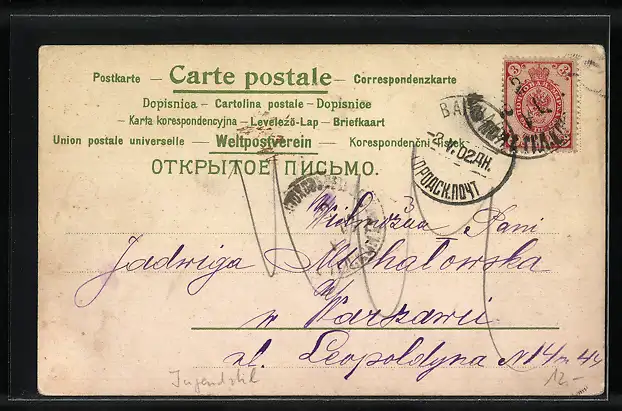 Postkarte — Carte postale — Correspondenzkarte
Dopisnica — Cartolina postale — Dopisnice
Karta korespondencyjna — Levelező-Lap — Briefkaart
Union postale universelle — Weltpostverein — Korespondenční lístek
ОТКРЫТОЕ ПИСЬМО.
3 3
-2.V.02ДН.
ГОРОДСК.ПОЧТ
Wielmożna Pani
Jadwiga Michałowska
w Warszawie
ul. Leopoldyna N 14 m 44
Jugendstil
12.-